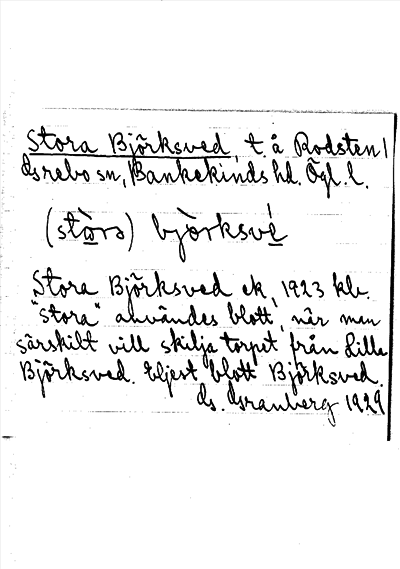 Stora Björksved, t. å Rodsten 1
Grebo sn, Bankekinds hd. Ögl. l.
(stòra) bjòrksvé
Stora Björksved ek, 1923 kb.
"Stora" användes blott, när man
särskilt vill skilja torpet från Lilla
Björksved. Eljest blott Björksved.
G. Granberg 1929